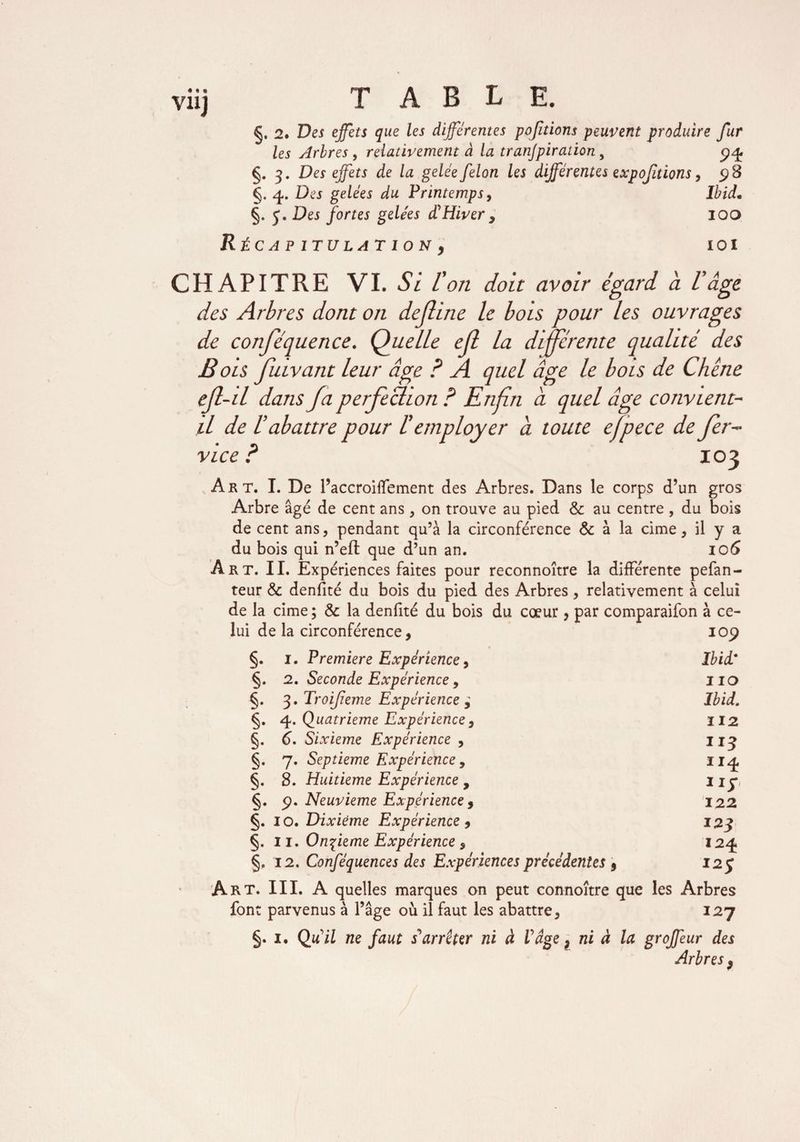 viij T A B L E.
§. 2. Des effets que les différentes poſitions peuvent produire ſur
les Arbres, relativement à la tranſpiration, 94
§. 3. Des effets de la gelée ſelon les différentes expoſitions, 98
§. 4. Des gelées du Printemps, Ibid.
§. 5. Des fortes gelées d'Hiver, 100
RÉCAPITULATION, 101
CHAPITRE VI. Si l'on doit avoir égard à l'âge
des Arbres dont on deſtine le bois pour les ouvrages
de conſéquence. Quelle eſt la différente qualité des
Bois ſuivant leur âge ? A quel âge le bois de Chêne
eſt-il dans ſa perfection ? Enfin à quel âge convient-
il de l'abattre pour l'employer à toute eſpece de ſer-
vice ? 103
ART. I. De l'accroiſſement des Arbres. Dans le corps d'un gros
Arbre âgé de cent ans, on trouve au pied & au centre, du bois
de cent ans, pendant qu'à la circonférence & à la cime, il y a
du bois qui n'eſt que d'un an. 106
ART. II. Expériences faites pour reconnoître la différente peſan-
teur & denſité du bois du pied des Arbres, relativement à celui
de la cime; & la denſité du bois du cœur, par comparaiſon à ce-
lui de la circonférence, 109
§. 1. Premiere Expérience, Ibid.
§. 2. Seconde Expérience, 110
§. 3. Troiſieme Expérience; Ibid.
§. 4. Quatrieme Expérience, 112
§. 6. Sixieme Expérience, 113
§. 7. Septieme Expérience, 114
§. 8. Huitieme Expérience, 115
§. 9. Neuvieme Expérience, 122
§. 10. Dixiéme Expérience, 123
§. 11. Onzieme Expérience, 124
§. 12. Conſéquences des Expériences précédentes, 125
ART. III. A quelles marques on peut connoître que les Arbres
ſont parvenus à l'âge où il faut les abattre, 127
§. 1. Qu'il ne faut s'arrêter ni à l'âge, ni à la groſſeur des
Arbres,